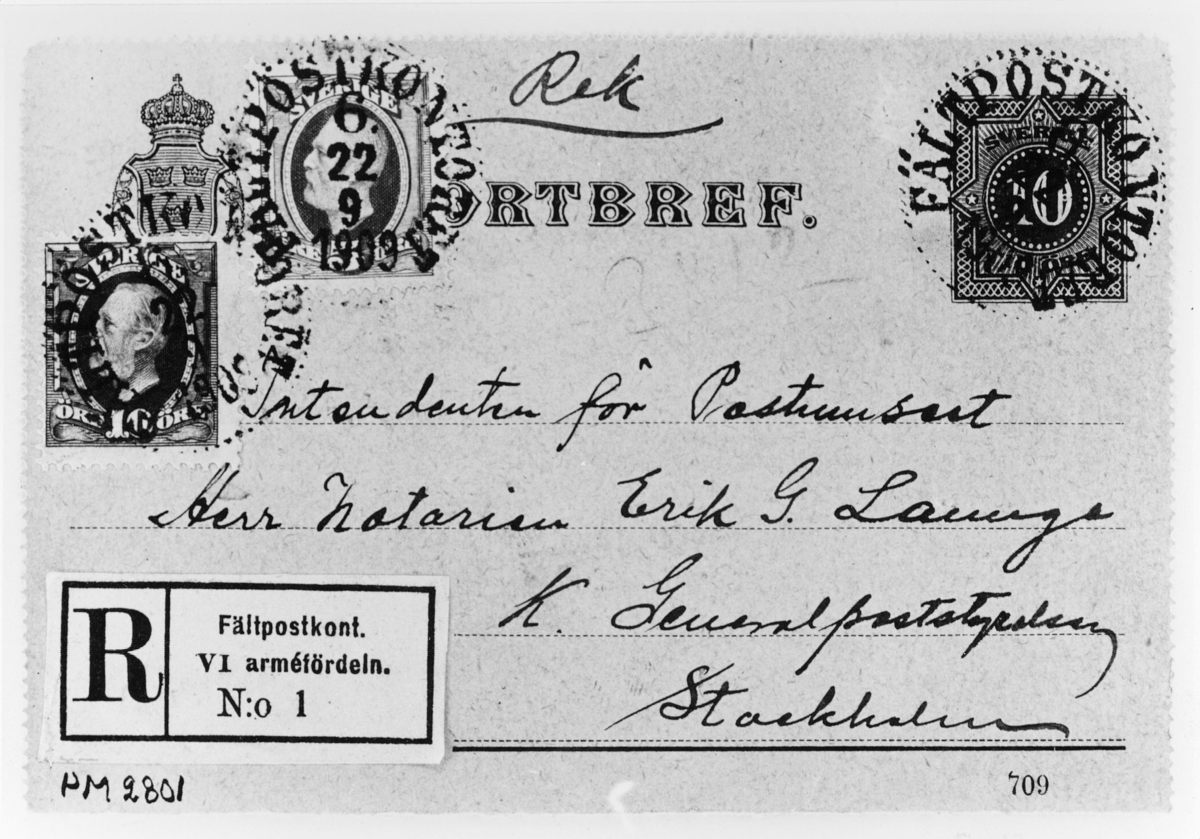 Rek
FÄLTPOSTKONTORET
SVERIGE
6.
22
9
1909
ORTBREF.
FÄLTPOSTKONTO
SVERIGE
10
POST
SVERIGE
ÖRE 10 ÖRE
Intendenten för Postmuseet
Herr Notarien Erik G. Launge
K. Generalpoststyrelsen
Stockholm
R
Fältpostkont.
VI arméfördeln.
N:o 1
PM 2801
709